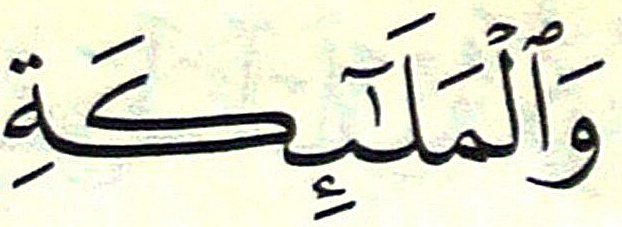 وَٱلْمَلَـٰٓئِكَةِ